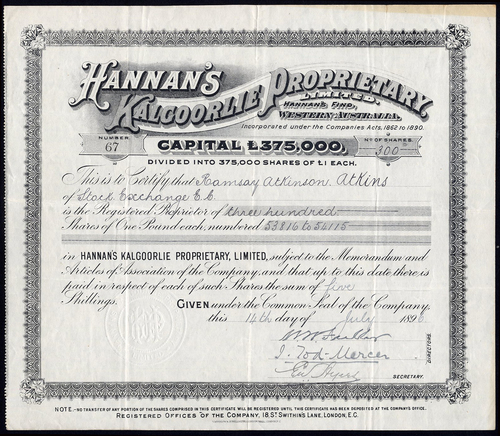 HANNAN'S
KALGOORLIE PROPRIETARY
LIMITED.
HANNAN'S FIND,
WESTERN AUSTRALIA.
Incorporated under the Companies Acts, 1862 to 1890.
NUMBER
67
CAPITAL £375,000,
Nº OF SHARES
300
DIVIDED INTO 375,000 SHARES OF £1 EACH.
This is to Certify that Ramsay Atkinson Atkins
of Stock Exchange E.C.
is the Registered Proprietor of three hundred
Shares of One Pound each, numbered 53816 to 54115
in HANNAN'S KALGOORLIE PROPRIETARY, LIMITED, subject to the Memorandum and
Articles of Association of the Company, and that up to this date there is
paid in respect of each of such Shares the sum of five
Shillings.
GIVEN under the Common Seal of the Company,
this 14th day of July 189
J. Tod-Mercer
DIRECTORS.
SECRETARY.
NOTE.- NO TRANSFER OF ANY PORTION OF THE SHARES COMPRISED IN THIS CERTIFICATE WILL BE REGISTERED UNTIL THIS CERTIFICATE HAS BEEN DEPOSITED AT THE COMPANY'S OFFICE.
REGISTERED OFFICES OF THE COMPANY, 18, ST SWITHIN'S LANE, LONDON, E.C.